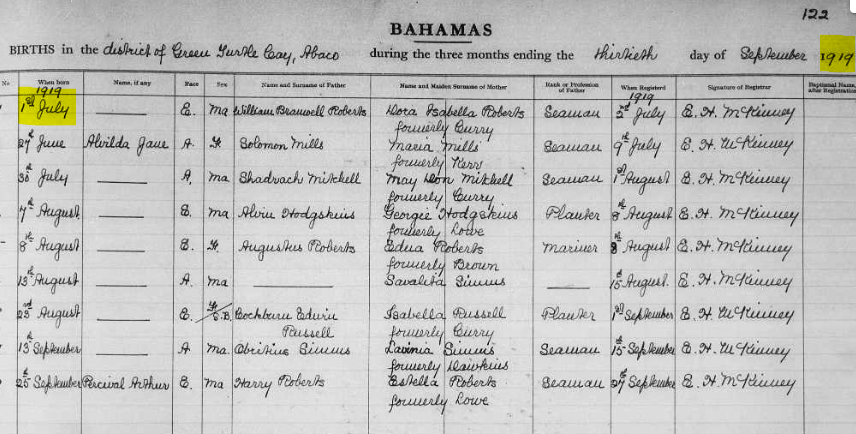 122
BAHAMAS
BIRTHS in the district of Green Turtle Cay, Abaco during the three months ending the thirtieth day of September 1919
No When born Name, if any Race Sex Name and Surname of Father Name and Maiden Surname of Mother Rank or Profession of Father When Registered Signature of Registrar Baptismal Name, after Registration
1919 1919
1st July —— E. ma William Bramwell Roberts Dora Isabella Roberts Seaman 2nd July E. H. McKinney
formerly Curry
27th June Alvilda Jane A. F. Solomon Mills Maria Mills Seaman 9th July E. H. McKinney
formerly Kerr
30th July —— A. ma Shadrach Mitchell May Mitchell Seaman 1st August E. H. McKinney
formerly Curry
7th August —— E. ma Alvin Hodgskins Georgie Hodgskins Planter 8th August E. H. McKinney
formerly Lowe
8th August —— E. F. Augustus Roberts Edna Roberts Mariner 8th August E. H. McKinney
formerly Brown
13th August —— A. ma —— Savalita Simms —— 15th August. E. H. McKinney
23rd August —— E. F./S.B. Cockburn Edwin Isabella Russell Planter 1st September E. H. McKinney
Russell formerly Curry
13th September —— A ma. Simms Lavinia Simms Seaman 15th September E. H. McKinney
formerly Hawkins
25th September Percival Arthur E. ma Harry Roberts Estella Roberts Seaman 27th September E. H. McKinney
formerly Lowe